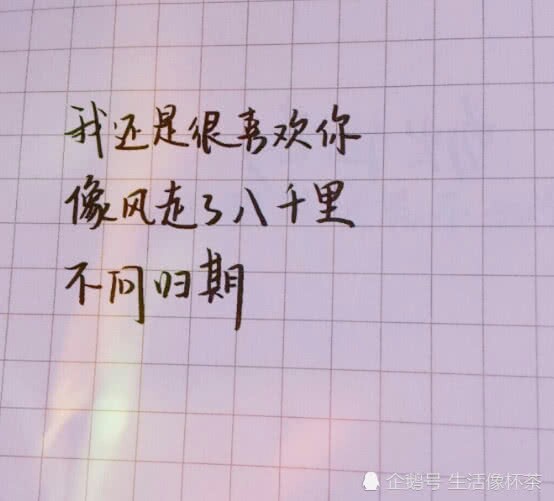 我还是很喜欢你
像风走了八千里
不问归期
企鹅号 生活像杯茶